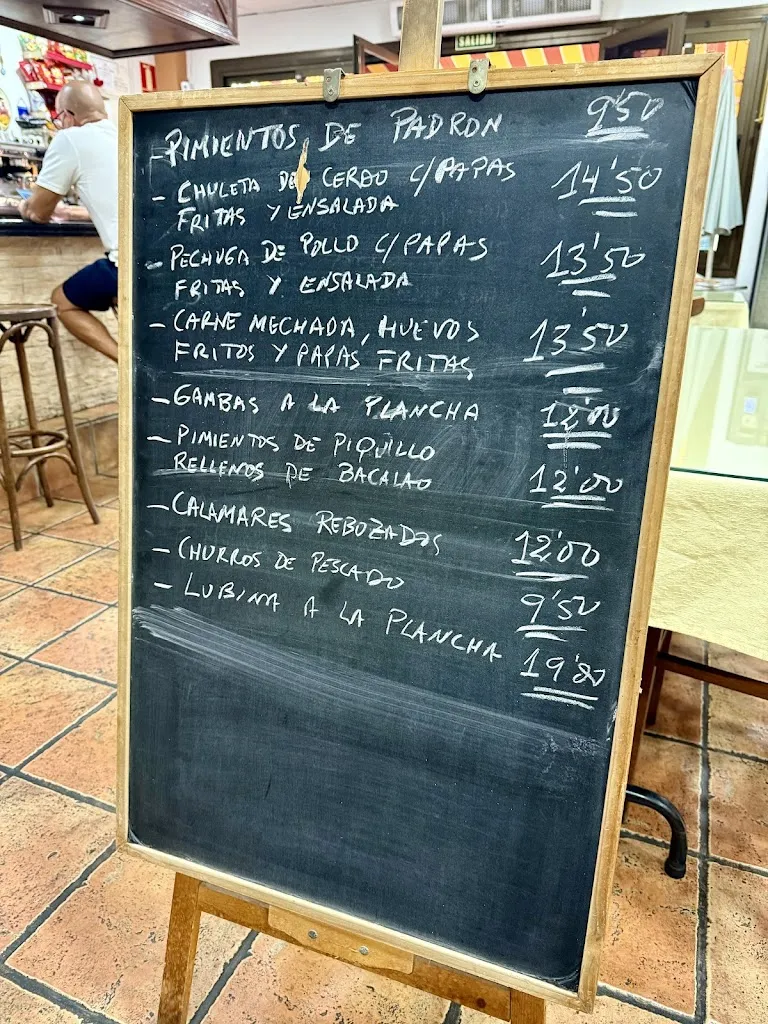 SALIDA
- PIMIENTOS DE PADRON 9'50
- CHULETA DE CERDO C/PAPAS 14'50
FRITAS Y ENSALADA
- PECHUGA DE POLLO C/PAPAS 13'50
FRITAS Y ENSALADA
- CARNE MECHADA, HUEVOS 13'50
FRITOS Y PAPAS FRITAS
- GAMBAS A LA PLANCHA 12'00
- PIMIENTOS DE PIQUILLO
RELLENOS DE BACALAO 12'00
- CALAMARES REBOZADOS 12'00
- CHURROS DE PESCADO 9'50
- LUBINA A LA PLANCHA